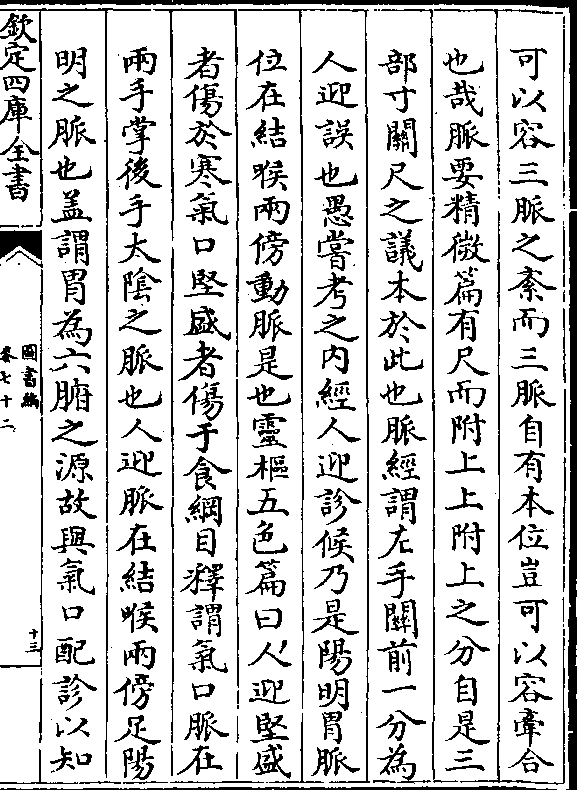 可以容三脈之紊而三脈自有本位豈可以容牽合
也哉脈要精微篇有尺而附上上附上之分自是三
部寸關尺之議本於此也脈經謂左手關前一分為
人迎誤也愚嘗考之内經人迎診候乃是陽明胃脈
位在結喉兩傍動脈是也靈樞五色篇曰人迎堅盛
者傷於寒氣口堅盛者傷于食綱目釋謂氣口脈在
兩手掌後手太陰之脈也人迎脈在結喉兩傍足陽
明之脈也盖謂胃為六腑之源故與氣口配診以知
欽定四庫全書
圖書編
卷七十二
十三